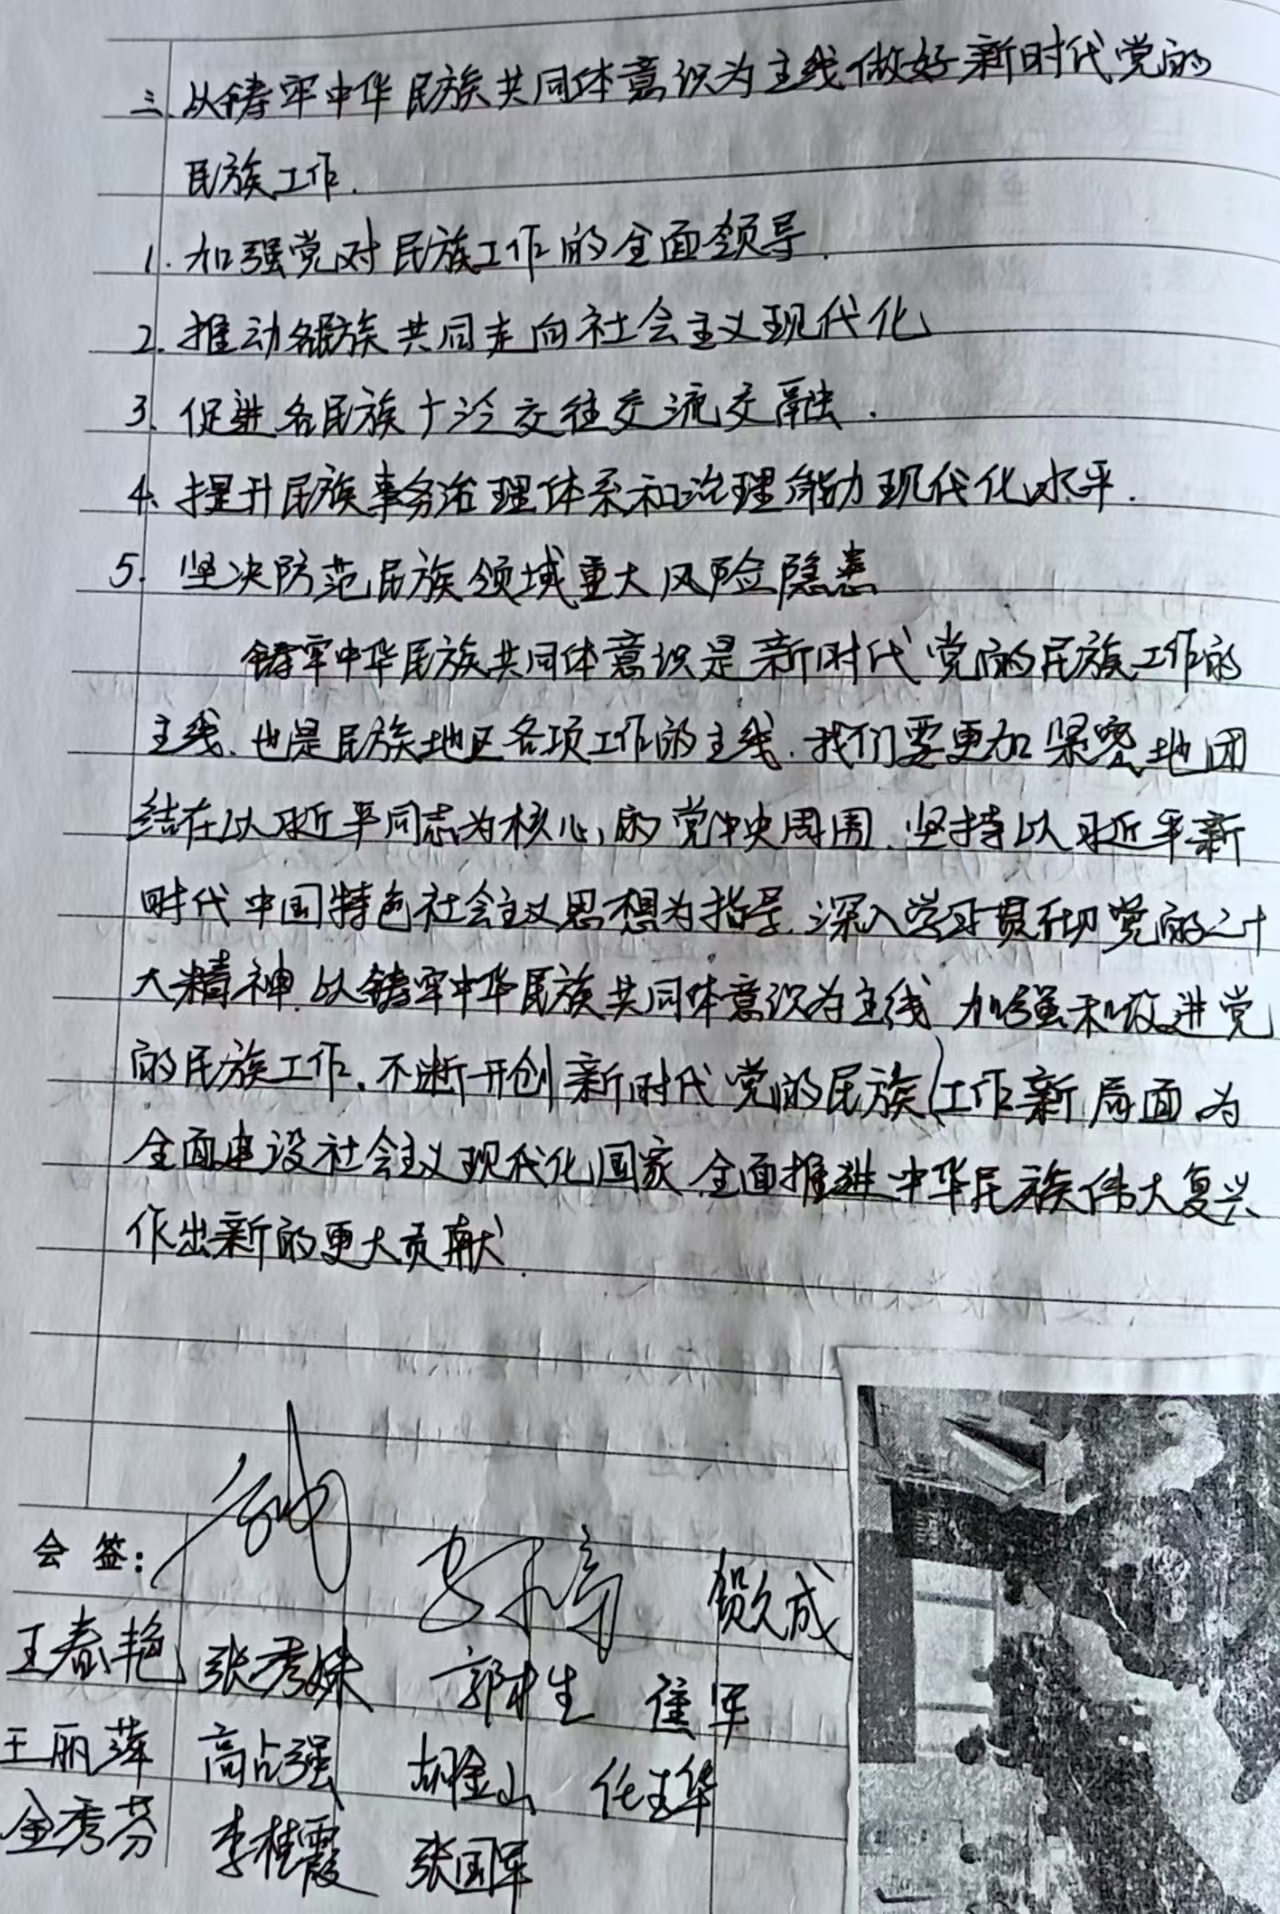 三、以铸牢中华民族共同体意识为主线做好新时代党的
民族工作.
1. 加强党对民族工作的全面领导.
2. 推动各民族共同走向社会主义现代化
3. 促进各民族广泛交往交流交融.
4. 提升民族事务治理体系和治理能力现代化水平.
5. 坚决防范民族领域重大风险隐患
铸牢中华民族共同体意识是新时代党的民族工作的
主线、也是民族地区各项工作的主线、我们要更加紧密地团
结在以习近平同志为核心的党中央周围、坚持以习近平新
时代中国特色社会主义思想为指导、深入学习贯彻党的二十
大精神、以铸牢中华民族共同体意识为主线 加强和改进党
的民族工作、不断开创新时代党的民族工作新局面 为
全面建设社会主义现代化国家、全面推进中华民族伟大复兴
作出新的更大贡献.
会 签:
贺久成
王春艳 张秀妹 郭才生 崔军
王丽萍 高占强 胡金山 任玉华
金秀芬 李桂霞 张国军